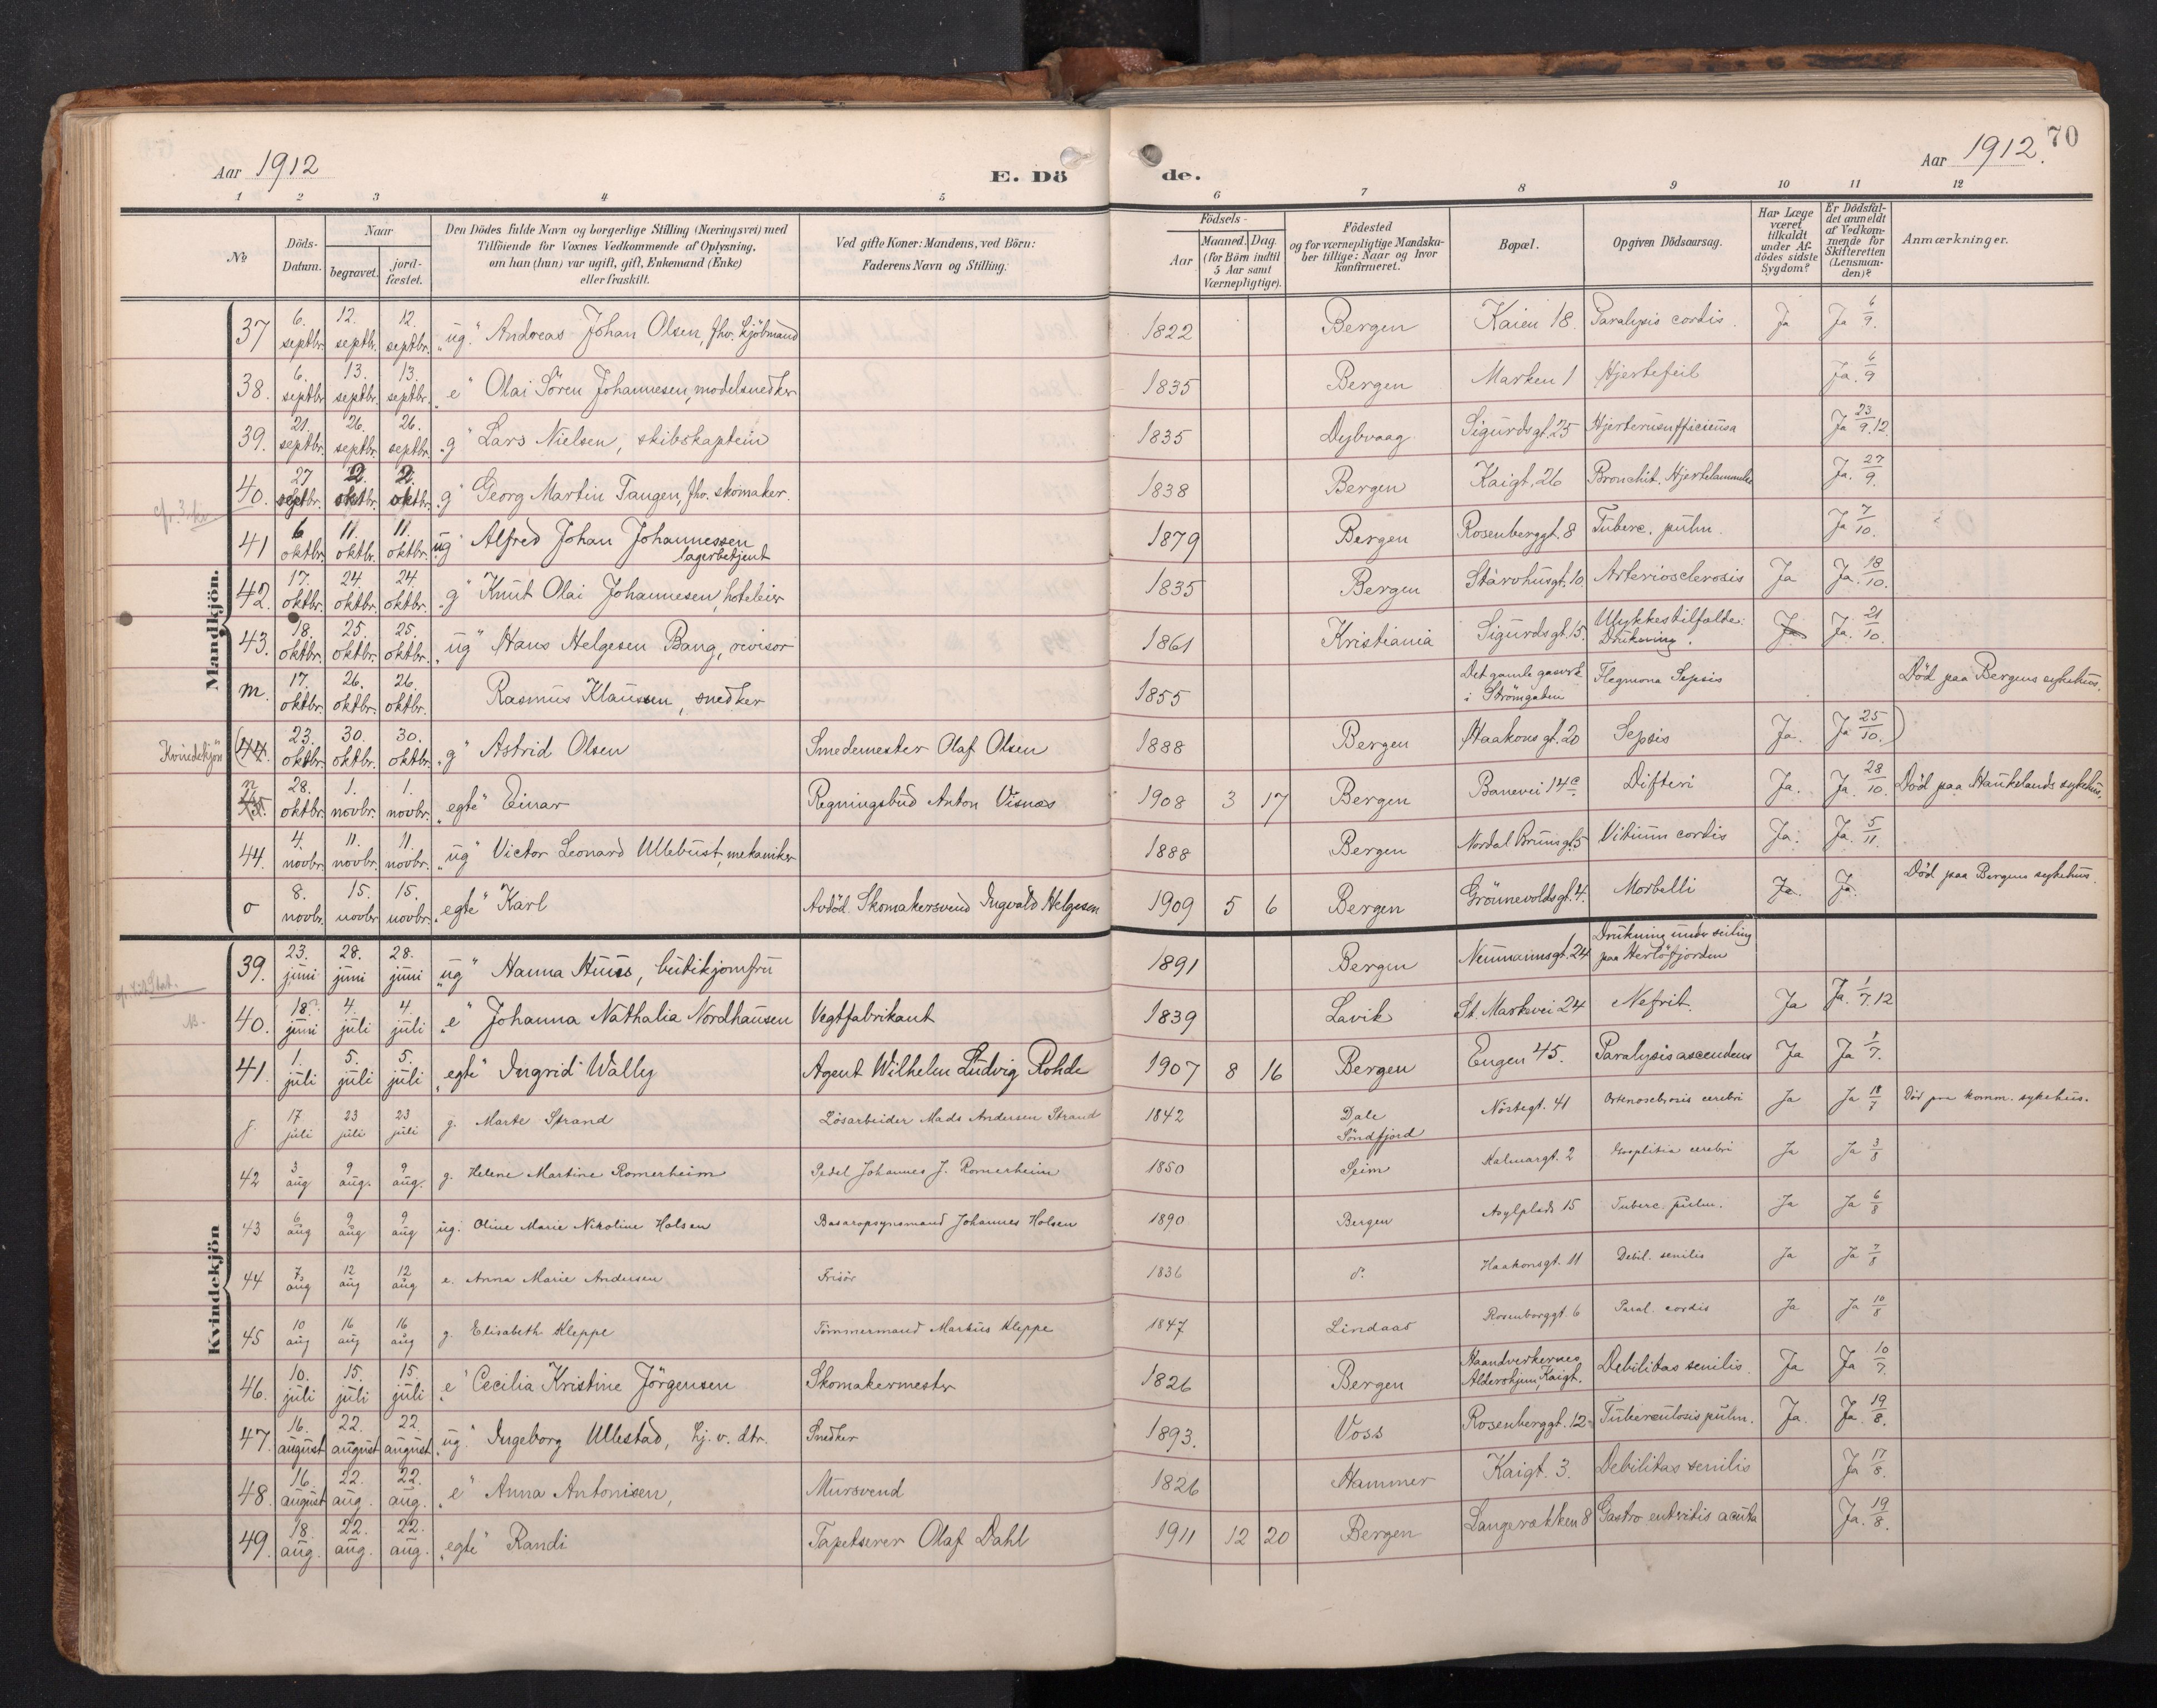 Aar 1912
E. Dö
de.
Aar 1912.
70
1 2 3 4 5 6 7 8 9 10 11 12
№
Döds-Datum.
Naar
begravet.
jord-fæstet.
Den Dödes fulde Navn og borgerlige Stilling (Næringsvei) med
Tilföiende for Voxnes Vedkommende af Oplysning,
om han (hun) var ugift, gift, Enkemand (Enke)
eller fraskilt.
Ved gifte Koner: Mandens, ved Börn:
Faderens Navn og Stilling.
Födsels-
Aar
Maaned. Dag.
(for Börn indtil
5 Aar samt
Værnepligtige).
Födested
og for værnepligtige Mandska-
ber tillige: Naar og hvor
konfirmeret.
Bopæl.
Opgiven Dödsaarsag.
Har Læge
været
tilkaldt
under Af-
dödes sidste
Sygdom?
Er Dödsfal-
det anmeldt
af Vedkom-
mende for
Skifteretten
(Lensman-
den)?
Anmærkninger.
Mandkjön.
37 6. septbr. 12. septb. 12. septbr. "ug" Andreas Johan Olsen, fhv. kjöbmand 1822 Bergen Kaien 18. Paralysis cordis. Ja Ja 6/9.
38. 6. septbr 13. septbr. 13. septbr. "e" Olai Sören Johannesen, modelsnedker 1835 Bergen Marken 1 Hjertefeil Ja. 6/9
39. 21. septbr. 26. septbr. 26. septbr. "g" Lars Nielsen, skibskaptein 1835 Dybvaag Sigurdsgt. 25 Ja 23/9.12.
cfr. 3.
40. 27 septbr. 2. oktbr. 2. oktbr. "g" Georg Martin Tangen, fhv. skomaker. 1838 Bergen Kaigt. 26 Bronchit. Hjertelammelse Ja. 27/9.
41 6 oktbr. 11. oktbr. 11. oktbr. "ug" Alfred Johan Johannessen
lagerbetjent 1879 Bergen Rosenberggt. 8 Tuberc. pulm. Ja 7/10.
42. 17. oktbr. 24. oktbr. 24. oktbr. "g" Knut Olai Johannesen, hoteleier 1835 Bergen Starvhusgt. 10 Arteriosclerosis Ja Ja. 18/10.
43. 18. oktbr. 25. oktbr. 25. oktbr. "ug" Hans Helgesen Bang, revisor 1861 Kristiania Sigurdsgt. 15. Ulykkestilfælde:
Drukning. Ja Ja. 21/10.
m. 17. oktbr. 26. oktbr. 26. oktbr. Rasmus Klausen, snedker 1855 Det gamle gasverk
i Strömgaten Flegmona Sepsis Död paa Bergens sykehus.
Kvindekjön (44. 23. oktbr. 30. oktbr. 30. oktbr. "g" Astrid Olsen Smedemester Olaf Olsen 1888 Bergen Haakonsgt. 20 Sepsis Ja. Ja 25/10.)
n 45. 28. oktbr. 1. novbr. 1. novbr. "egte" Einar Regningsbud Anton Visnæs 1908 3 17 Bergen Banevei 14 Difteri Ja. Ja. 28/10. Död paa Haukelands sykehus.
44. 4. novbr. 11. novbr. 11. novbr. "ug" Victor Leonard Ullebust, mekaniker 1888 Bergen Nordal Brunsgt. 5 Vitium cordis Ja. Ja. 5/11.
o 8. novbr. 15. novbr 15. novbr. "egte" Karl Avdöd. Skomakersvend Ingvald Helgesen 1909 5 6 Bergen Grönnevoldsgt. 4. Morbilli Ja. Ja. Död paa Bergens sykehus.
Kvindekjön
39. 23. juni 28. juni 28. juni "ug" Hanna Huus, butikjomfru 1891 Bergen Neumannsgt. 24 Drukning under seiling
paa Herlöfjorden
40. 18? juni 4. juli 4. juli "e" Johanna Nathalia Nordhausen Vegtfabrikant 1839 Lavik St. Marksvei 24 Nefrit. Ja Ja. 1/7 12
41. 1. juli 5. juli 5. juli "egte" Ingrid Wally Agent Wilhelm Ludvig Rohde 1907 8 16 Bergen Engen 45. Paralysis ascendens Ja Ja 1/7.
j. 17 juli 23 juli 23 juli g. Marte Strand Lösarbeider Mads Andersen Strand 1842 Dale
Söndfjord Nöstegt. 41 cerebri Ja Ja 18/7 Död paa komm. sykehus.
42 3 aug 9 aug. 9 aug. g. Helene Martine Romerheim Pedel Johannes J. Romerheim 1850 Seim Kalmargt. 2 cerebri Ja Ja 3/8
43 6 aug 9 aug 9 aug ug: Oline Marie Nikoline Holsen Basaropsynsmand Johannes Holsen 1890 Bergen Asylplads 15 Tuberc. pulm. Ja Ja 6/8
44 7 aug 12 aug 12 aug e. Anna Marie Andersen Frisör 1836 d. Haakonsgt. 11 Debil. senilis Ja Ja 7/8
45 10 aug 16 aug 16 aug g. Elisabeth Kleppe Tömmermand Markus Kleppe 1847 Lindaas Rosenberggt. 6 Paral. cordis Ja Ja 10/8
46. 10. juli 15. juli 15. juli "e" Cecilia Kristine Jörgensen Skomakermester 1826 Bergen Haandverkernes
Aldershjem, Kaigt. Debilitas senilis. Ja Ja 10/7.
47. 16. august 22. august 22 august "ug" Ingeborg Ullestad, hj. v. dtr. Snedker 1893. Voss Rosenberggt. 12 Tuberculosis pulm. Ja. Ja. 19/8.
48. 16. august 22. aug. 22. aug. "e" Anna Antonisen, Mursvend 1826 Hammer Kaigt. 3. Debilitas senilis Ja 17/8.
49. 18. aug. 22. aug. 22. aug. "egte" Randi Tapetserer Olaf Dahl 1911 12 20 Bergen Langerækken 8 Gastro enteritis acuta Ja. 19/8.